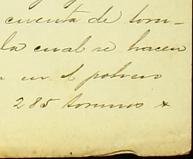 cuenta de tom-
la cual se hacen
en el potrero
285 tominos